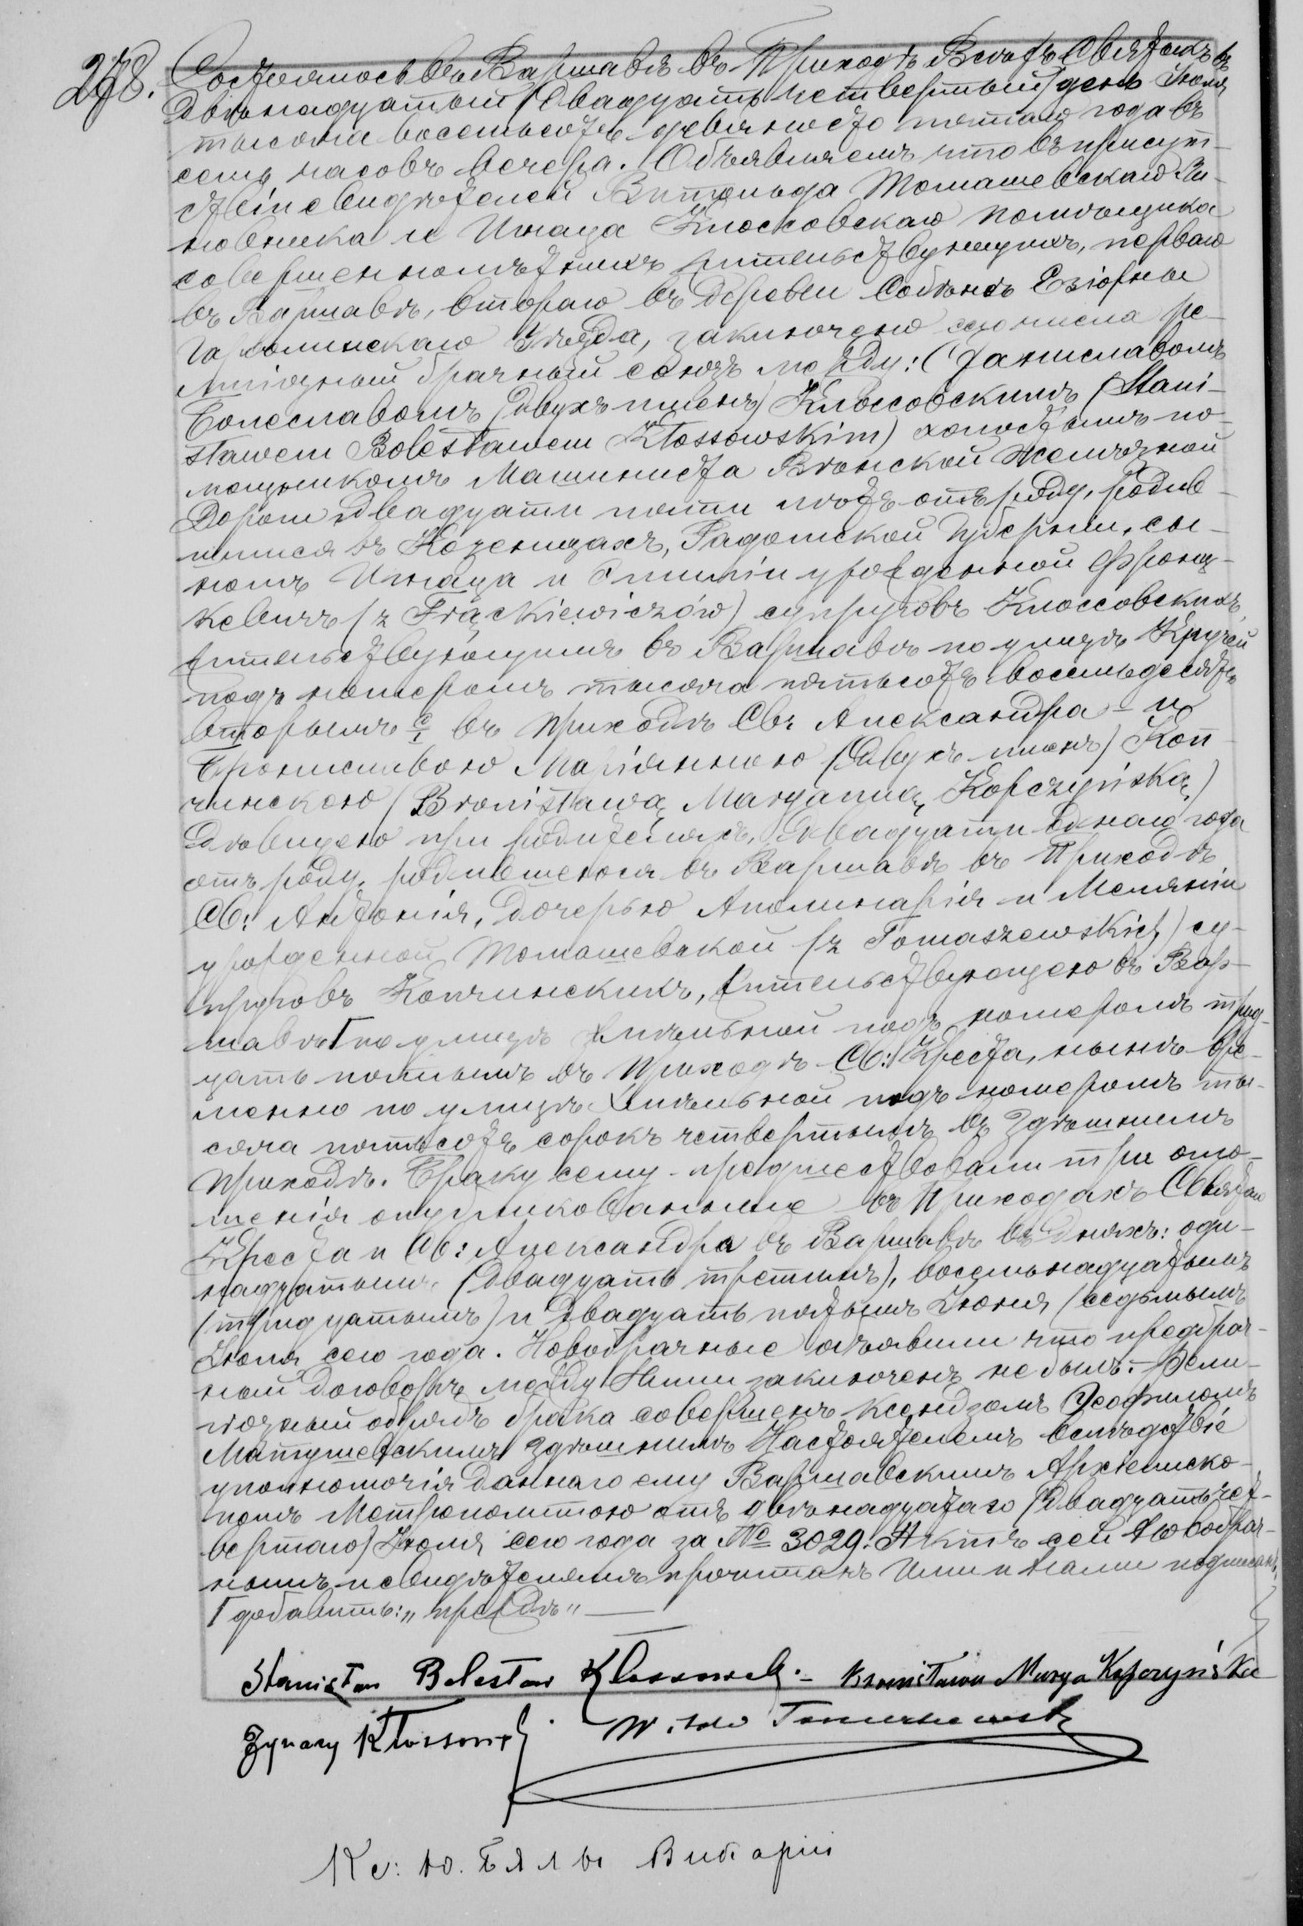 278. Состоялось въ Варшавѣ въ Приходѣ Всѣхъ Святыхъ въ
двѣнадцатый /двадцать четвертый/ день Іюля
тысяча восемьсотъ девяносто пятаго года въ
семь часовъ вечера. Объявляемъ что въ присут-
ствіи свидѣтелей Витольда Томашевскаго
и Игнаца Клосовскаго помѣщика
совершеннолѣтнихъ жительствующихъ, перваго
въ Варшавѣ, втораго въ деревни Собѣнѣ Езіорные
Гарволинскаго Уѣзда, заключено сего числа ре-
лигіозный брачный союзъ между: Станиславомъ
Болеславомъ (двухъ именъ) Клоссовскимъ (Stani-
sławem Bolesławem Kłossowskim) холостымъ по-
мощникомъ Машиниста Вѣнской Желѣзной
Дороги двадцати пяти лѣтъ отъ роду, родив-
шимся въ Козеницахъ, Радомской Губерніи, сы-
номъ Игнаца и Эмиліи урожденной Фронц-
кевичъ (z Frąckiewiczów) супруговъ Клоссовскихъ,
жительствующимъ въ Варшавѣ по улицѣ Кручей
подъ номеромъ тысяча пятьсотъ восемьдесятъ
вторымъ с/1 въ Приходѣ Св. Александра – и
Брониславою Маріянною (двухъ именъ) Коп-
чинскою (Bronisławą Maryanną Kopczyńską)
дѣвицею при родителяхъ, двадцати одного года
отъ роду, родившеюся въ Варшавѣ въ Приходѣ
Св: Антонія, дочерью Аполинарія и Меляніи
урожденной Томашевской (z Tomaszewskich) су-
пруговъ Копчинскихъ, жительствующею въ Вар-
шавѣ Г по улицѣ Хмѣльной подъ номеромъ трид-
цать пятымъ въ Приходѣ Св: Креста, нынѣ вре-
менно по улицѣ Хмѣльной подъ номеромъ ты-
сяча пятьсотъ сорокъ четвертымъ въ здѣшнемъ
Приходѣ. Браку сему предшествовали три огла-
шенія опубликованные въ Приходахъ Святаго
Креста и Св: Александра въ Варшавѣ въ дняхъ: оди-
надцатымъ (двадцать третьимъ), восемьнадцатымъ
(тридцатымъ) и двадцать пятымъ Іюня (седьмымъ
Іюля сего года. Новобрачные объявили что предбрач-
ный договоръ между Ними заключенъ не былъ. – Рели-
гіозный обрядъ брака совершенъ Ксендзомъ Теофиломъ
Матушевскимъ здѣшнимъ Настоятелемъ вслѣдствіе
уполномочія даннаго ему Варшавскимъ Архіеписко-
помъ Метрополитою отъ двѣнадцатаго (двадцать чет-
вертаго) Іюля сего года за № 3029. Актъ сей Новобрач-
нымъ и свидѣтелямъ прочитанъ Ими и нами подписанъ,
Г добавить: „прежде" —
Stanisław Bolesław Kłossowski. – Bronisława Marya Kopczyńska
Ignacy Kłossowski. Witold Tomaszewski
Кс: Ю. Бялы Викарій